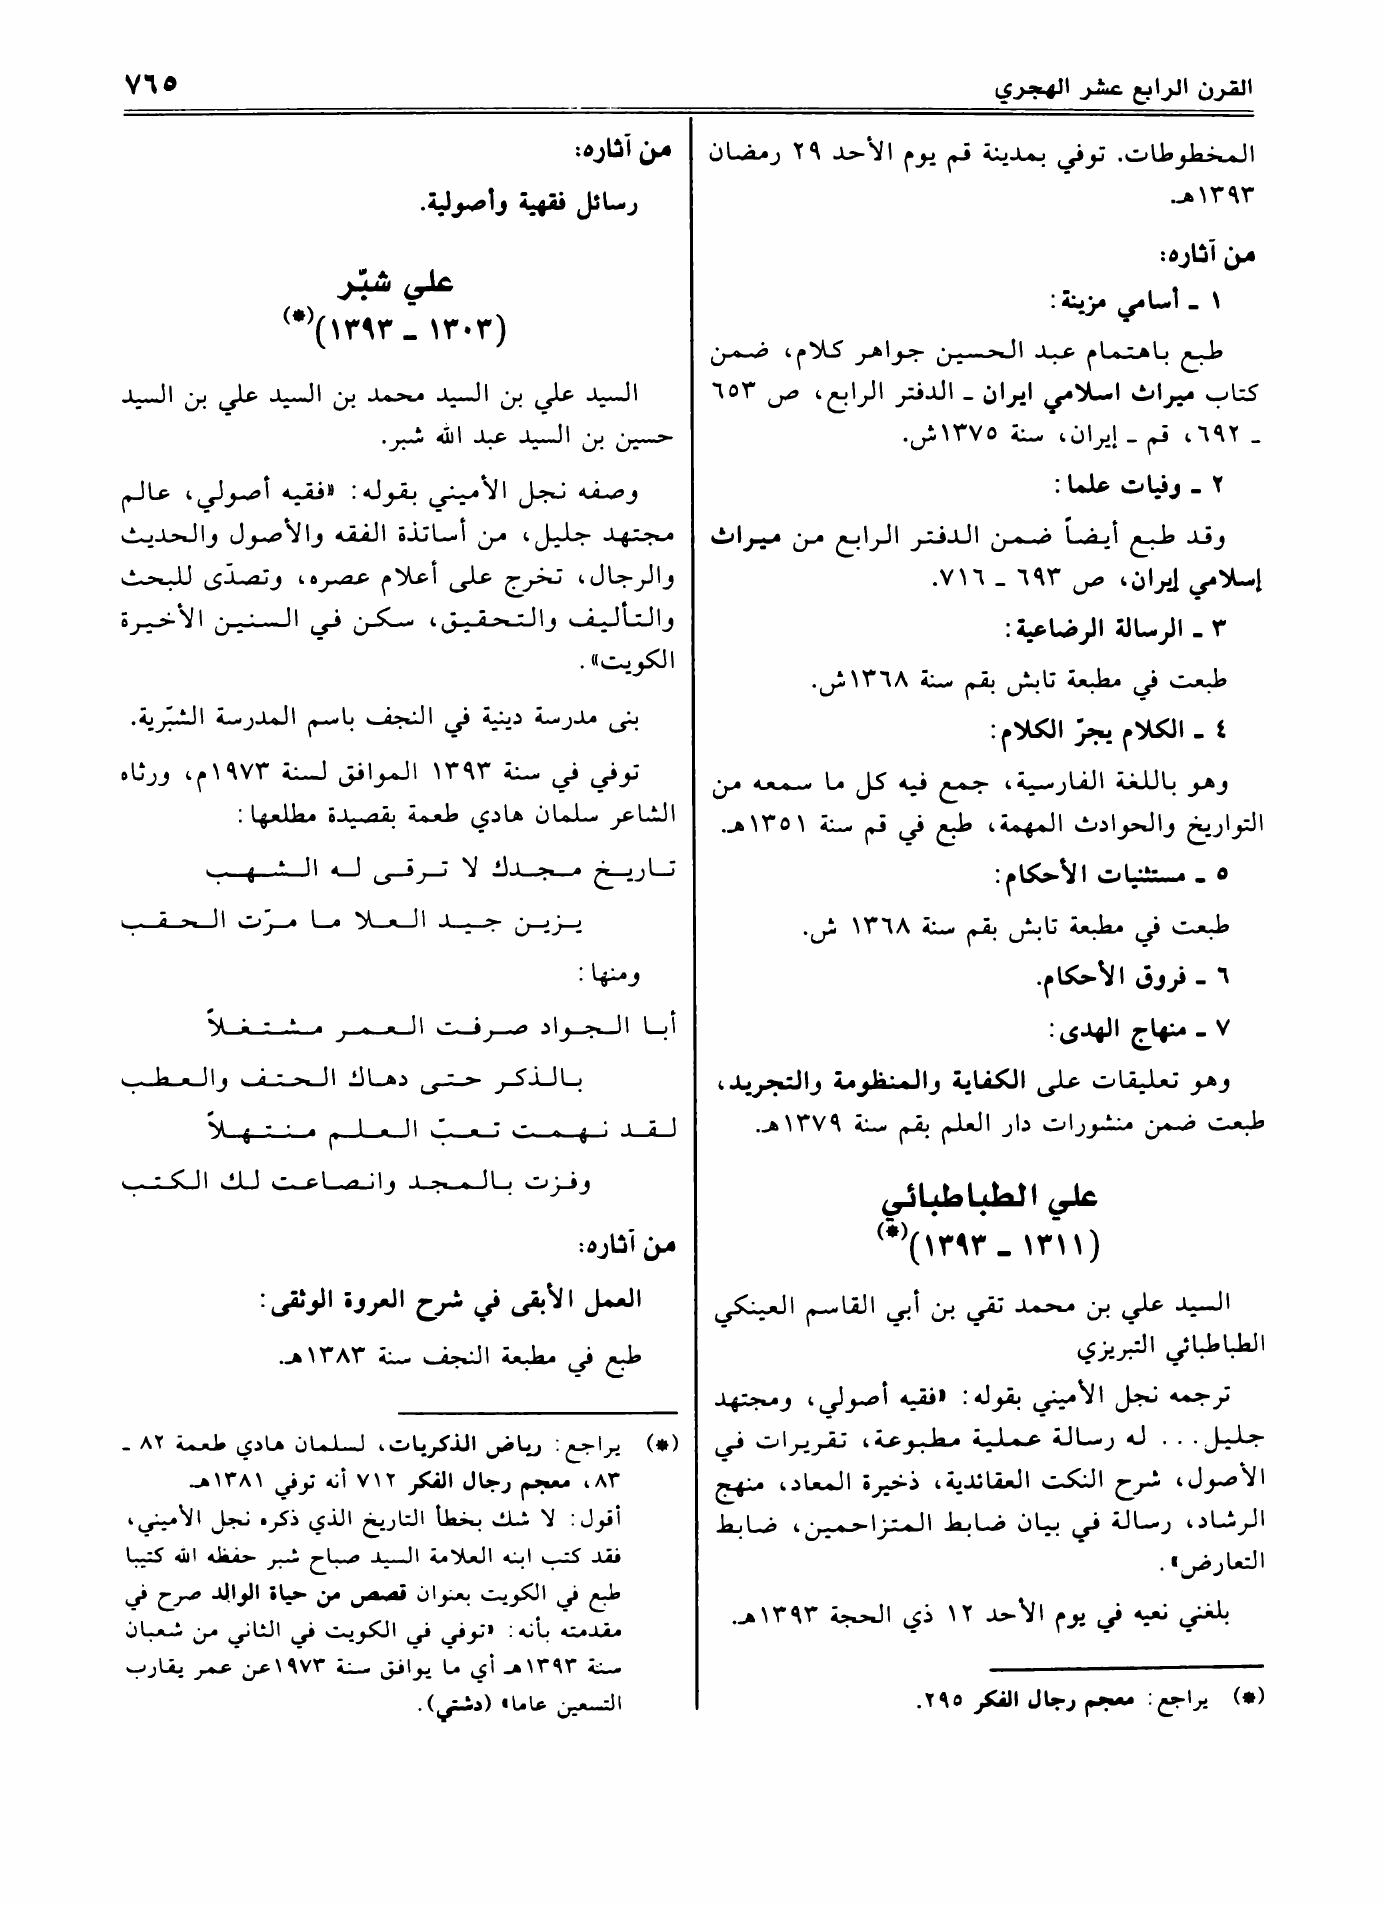 القرن الرابع عشر الهجري
٧٦٥
المخطوطات. توفي بمدينة قم يوم الأحد ٢٩ رمضان
١٣٩٣هـ.
من آثاره:
١ ـ أسامي مزينة:
طبع باهتمام عبد الحسين جواهر كلام، ضمن
كتاب ميراث اسلامي ايران ـ الدفتر الرابع، ص ٦٥٣
ـ ٦٩٢، قم ـ إيران، سنة ١٣٧٥ش.
٢ ـ وفيات علما:
وقد طبع أيضاً ضمن الدفتر الرابع من ميراث
إسلامي إيران، ص ٦٩٣ ـ ٧١٦.
٣ ـ الرسالة الرضاعية:
طبعت في مطبعة تابش بقم سنة ١٣٦٨ش.
٤ ـ الكلام يجرّ الكلام:
وهو باللغة الفارسية، جمع فيه كل ما سمعه من
التواريخ والحوادث المهمة، طبع في قم سنة ١٣٥١هـ.
٥ ـ مستثنيات الأحكام:
طبعت في مطبعة تابش بقم سنة ١٣٦٨ ش.
٦ ـ فروق الأحكام.
٧ ـ منهاج الهدى:
وهو تعليقات على الكفاية والمنظومة والتجريد،
طبعت ضمن منشورات دار العلم بقم سنة ١٣٧٩هـ.
علي الطباطبائي
(١٣١١ ـ ١٣٩٣)(*)
السيد علي بن محمد تقي بن أبي القاسم العينكي
الطباطبائي التبريزي
ترجمه نجل الأميني بقوله: «فقيه أصولي، ومجتهد
جليل... له رسالة عملية مطبوعة، تقريرات في
الأصول، شرح النكت العقائدية، ذخيرة المعاد، منهج
الرشاد، رسالة في بيان ضابط المتزاحمين، ضابط
التعارض».
بلغني نعيه في يوم الأحد ١٢ ذي الحجة ١٣٩٣هـ.
(*) يراجع: معجم رجال الفكر ٢٩٥.
من آثاره:
رسائل فقهية وأصولية.
علي شبّر
(١٣٠٣ ـ ١٣٩٣)(*)
السيد علي بن السيد محمد بن السيد علي بن السيد
حسين بن السيد عبد الله شبر.
وصفه نجل الأميني بقوله: «فقيه أصولي، عالم
مجتهد جليل، من أساتذة الفقه والأصول والحديث
والرجال، تخرج على أعلام عصره، وتصدّى للبحث
والتأليف والتحقيق، سكن في السنين الأخيرة
الكويت».
بنى مدرسة دينية في النجف باسم المدرسة الشبّرية.
توفي في سنة ١٣٩٣ الموافق لسنة ١٩٧٣م، ورثاه
الشاعر سلمان هادي طعمة بقصيدة مطلعها:
تاريخ مجدك لا ترقى له الشهب
يزين جيد العلا ما مرّت الحقب
ومنها:
أبا الجواد صرفت العمر مشتغلاً
بالذكر حتى دهاك الحتف والعطب
لقد نهمت تعبّ العلم منتهلاً
وفزت بالمجد وانصاعت لك الكتب
من آثاره:
العمل الأبقى في شرح العروة الوثقى:
طبع في مطبعة النجف سنة ١٣٨٣هـ.
(*) يراجع: رياض الذكريات، لسلمان هادي طعمة ٨٢ ـ
٨٣، معجم رجال الفكر ٧١٢ أنه توفي ١٣٨١هـ.
أقول: لا شك بخطأ التاريخ الذي ذكره نجل الأميني،
فقد كتب ابنه العلامة السيد صباح شبر حفظه الله كتيبا
طبع في الكويت بعنوان قصص من حياة الوالد صرح في
مقدمته بأنه: «توفي في الكويت في الثاني من شعبان
سنة ١٣٩٣هـ أي ما يوافق سنة ١٩٧٣عن عمر يقارب
التسعين عاما» (دشتي).